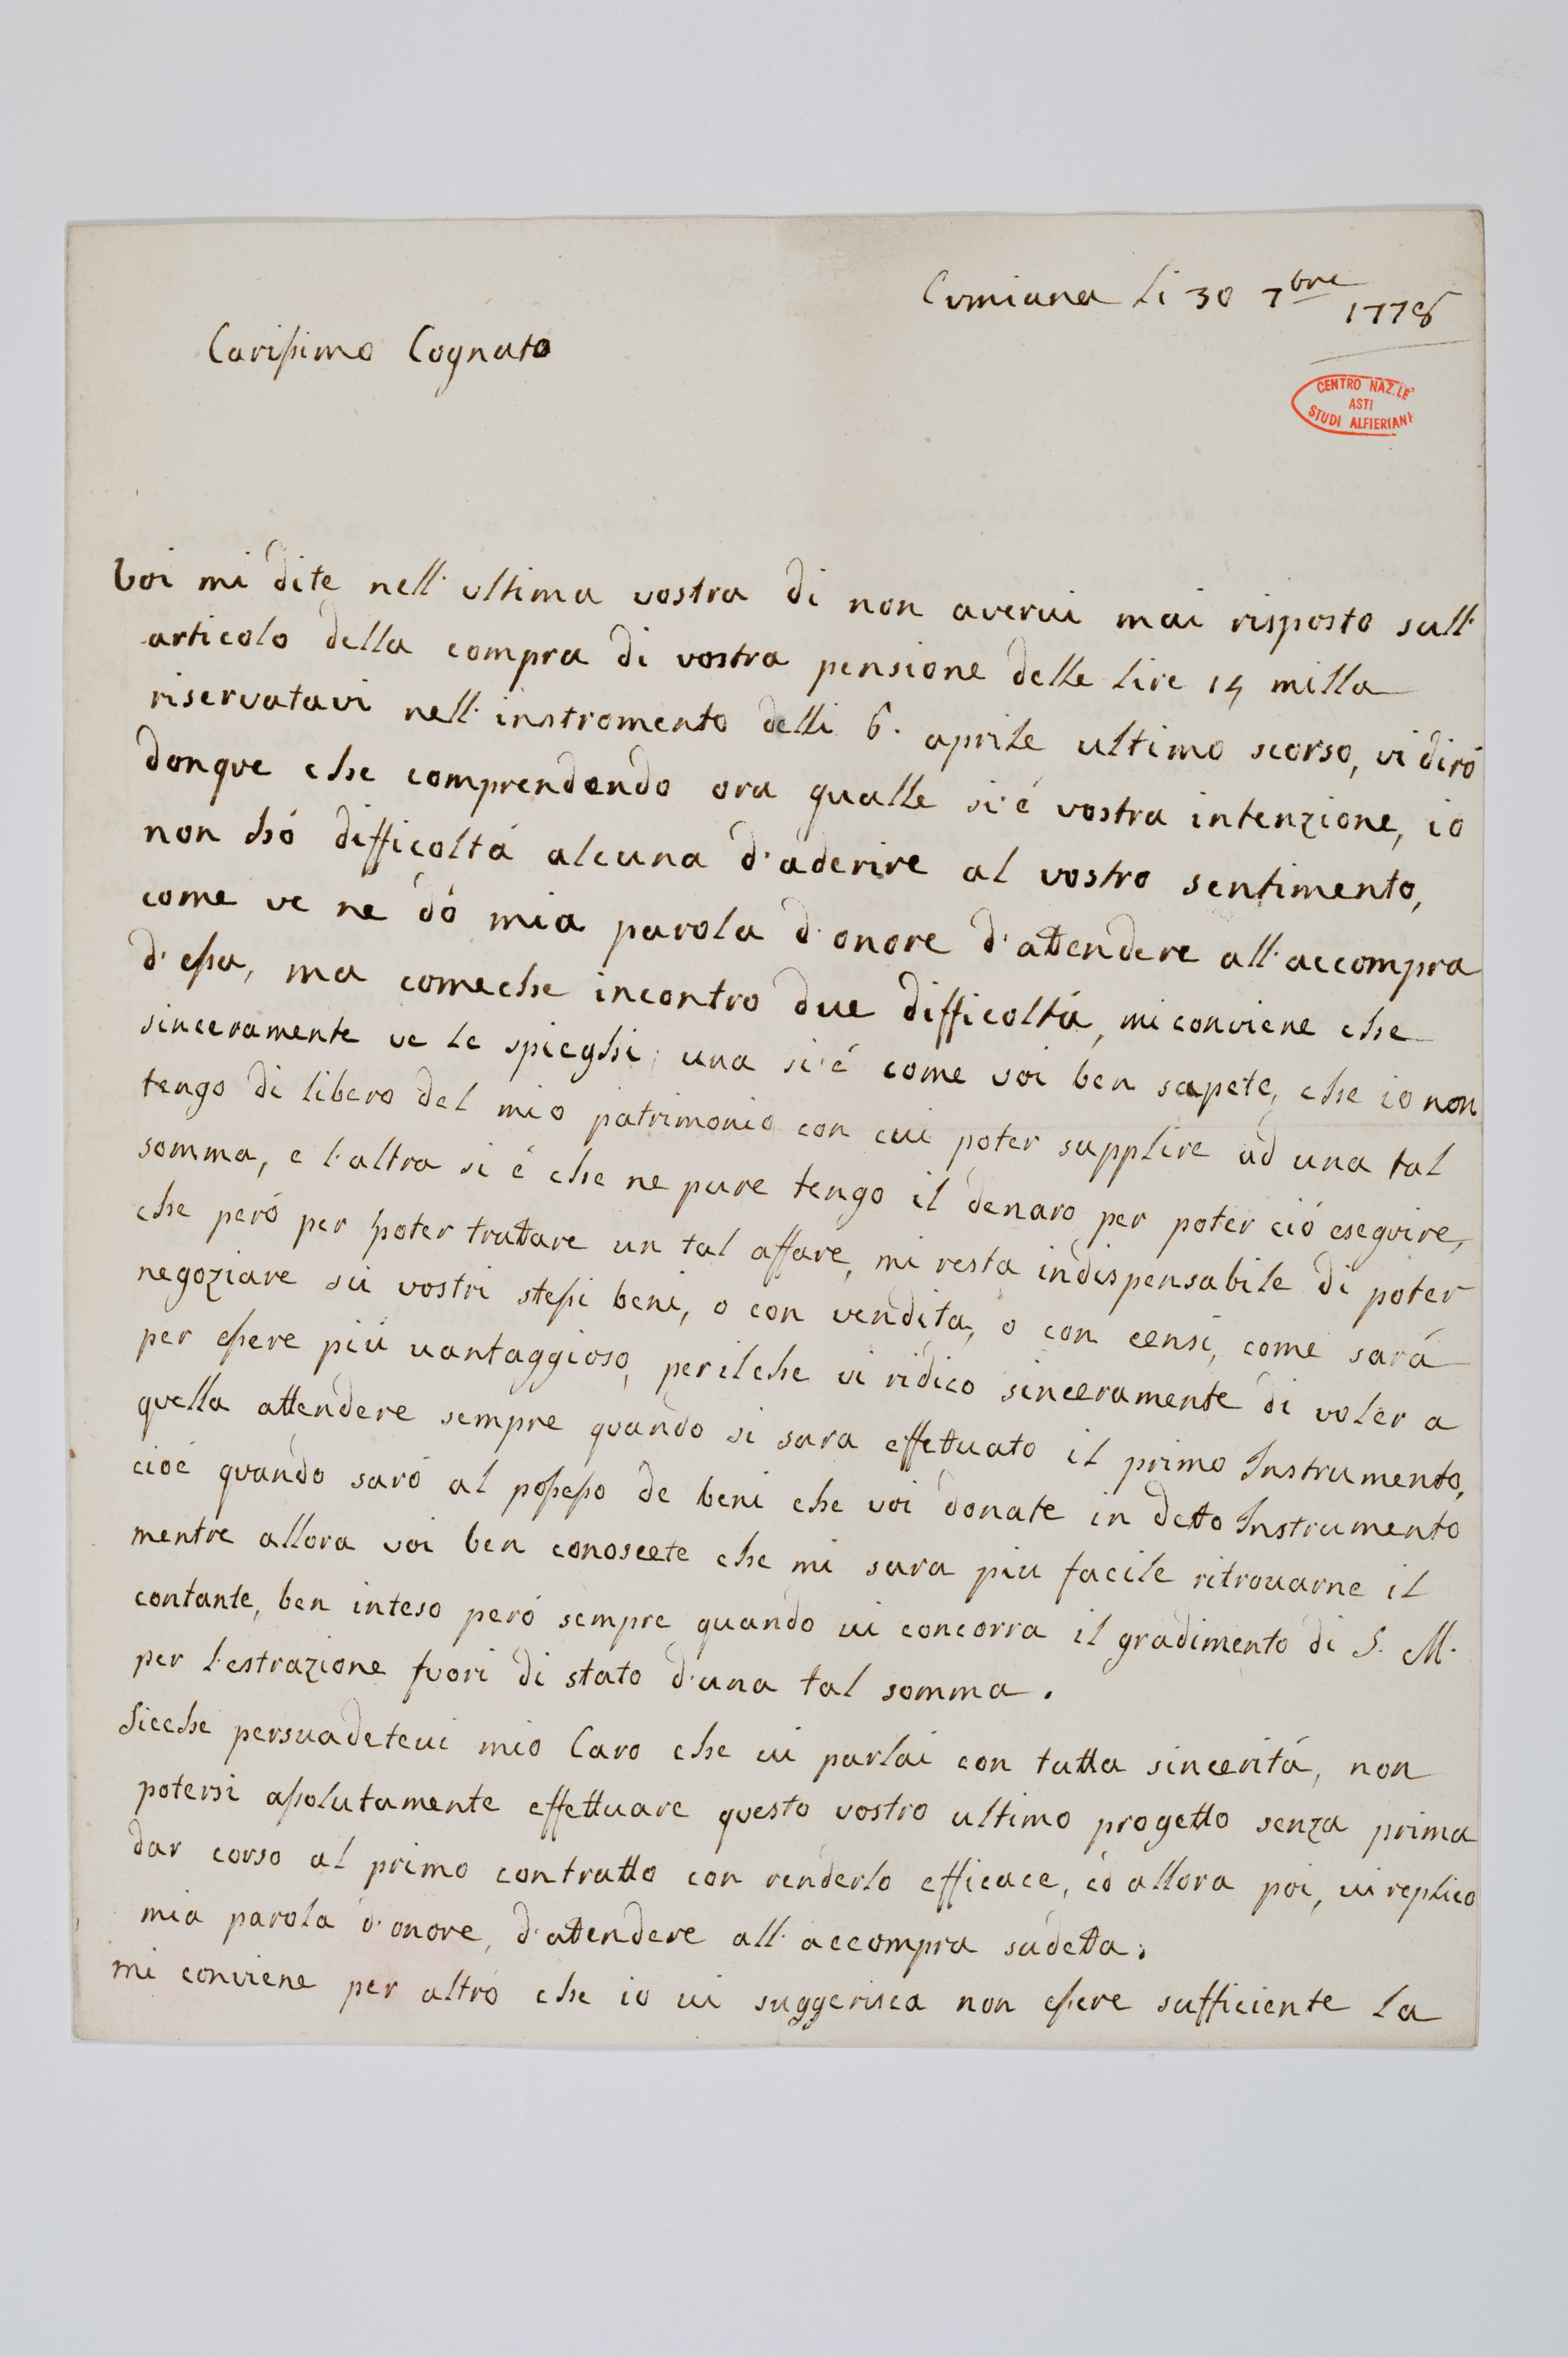 Cumiana li 30 7bre 1778
Carissimo Cognato
CENTRO NAZ.LE
ASTI
STUDI ALFIERIANI
Voi mi dite nell' ultima vostra di non avervi mai risposto sull'
articolo della compra di vostra pensione delle lire 14 milla
riservatavi nell' instromento delli 6. aprile ultimo scorso, vi diró
donque che comprendendo ora qualle si é vostra intenzione, io
non hó difficoltá alcuna d'aderire al vostro sentimento,
come ve ne dó mia parola d'onore d'attendere all'accompra
d'essa, ma comeche incontro due difficoltá, mi conviene che
sinceramente ve le spieghi; una si é come voi ben sapete, che io non
tengo di libero del mio patrimonio con cui poter supplire ad una tal
somma, e l'altra si é che ne pure tengo il denaro per poter ció eseguire,
che peró per poter trattare un tal affare, mi resta indispensabile di poter
negoziare sú vostri stessi beni, o con vendita, o con censi, come sará
per essere piú vantaggioso, per il che vi ridico sinceramente di voler a
quella attendere sempre quando si sara effettuato il primo Instrumento,
cioé quando saró al possesso de beni che voi donate in detto Instrumento
mentre allora voi ben conoscete che mi sara piu facile ritrovarne il
contante, ben inteso peró sempre quando vi concorra il gradimento di S. M.
per l'estrazione fuori di stato d'una tal somma.
Sicche persuadetevi mio Caro che vi parlai con tutta sinceritá, non
potersi assolutamente effettuare questo vostro ultimo progetto senza prima
dar corso al primo contratto con renderlo efficace, ed allora poi, vi replico
mia parola d'onore, d'attendere all'accompra sudetta.
mi conviene per altro che io vi suggerisca non essere sufficiente la